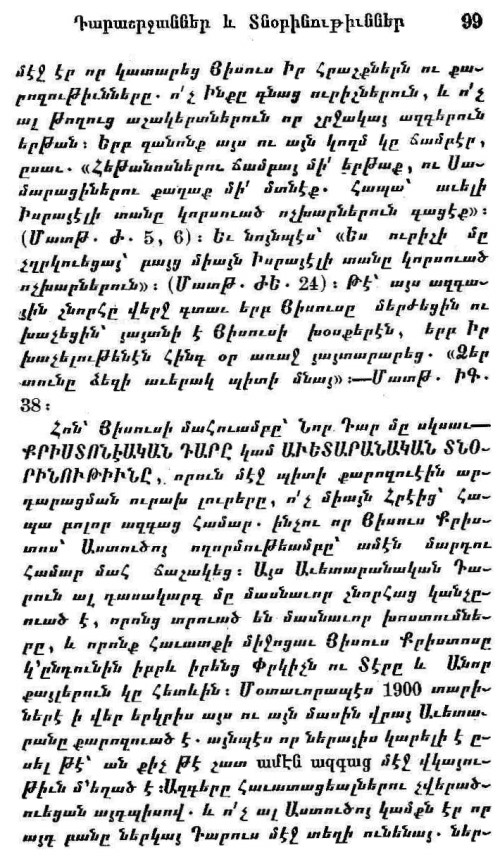 Դարաշրջաններ և Տնօրինութիւններ 99
մէջ էր որ կատարեց Յիսուս Իր Հրաշքներն ու քա-
րոզութիւնները. ո՛չ Ինքը գնաց ուրիշներուն, և ո՛չ
ալ թողուց աշակերտներուն որ շրջակայ ազգերուն
երթան։ Երբ զանոնք այս ու այն կողմ կը ճամբէր,
ըսաւ. «Հեթանոսներու ճամբայ մի՛ երթաք, ու Սա-
մարացիներու քաղաք մի՛ մտնէք. Հապա՝ աւելի
Իսրայէլի տանը կորսուած ոչխարներուն գացէք»։
(Մատթ. Ժ. 5, 6)։ Եւ նոյնպէս՝ «Ես ուրիշի մը
չղրկուեցայ՝ բայց միայն Իսրայէլի տանը կորսուած
ոչխարներուն»։ (Մատթ. ԺԵ. 24)։ Թէ՝ այս ազգա-
յին շնորհը վերջ գտաւ երբ Յիսուսը մերժեցին ու
խաչեցին՝ յայտնի է Յիսուսի խօսքերէն, երբ Իր
խաչելութենէն հինգ օր առաջ յայտարարեց. «Ձեր
տունը ձեզի աւերակ պիտի մնայ»։—Մատթ. ԻԳ.
38։
Հոն՝ Յիսուսի մահուամբը՝ Նոր Դար մը սկսաւ—
ՔՐԻՍՏՈՆԷԱԿԱՆ ԴԱՐԸ կամ ԱՒԵՏԱՐԱՆԱԿԱՆ ՏՆՕ-
ՐԻՆՈՒԹԻՒՆԸ, որուն մէջ պիտի քարոզուէին ար-
դարացման ուրախ լուրերը, ո՛չ միայն Հրէից՝ Հա-
պա բոլոր ազգաց Համար. ինչու որ Յիսուս Քրիս-
տոս՝ Աստուծոյ ողորմութեամբը՝ ամէն մարդու
Համար մահ ճաշակեց։ Այս Աւետարանական Դա-
րուն ալ դասակարգ մը մասնաւոր շնորհաց կանչը-
ուած է, որոնց տրուած են մասնաւոր խոստումնե-
րը, և որոնք Հաւատքի միջոցաւ Յիսուս Քրիստոսը
կ՚ընդունին իբրև իրենց Փրկիչն ու Տէրը և Անոր
քայլերուն կը Հետևին։ Մօտաւորապէս 1900 տարի-
ներէ ի վեր երկրիս այս ու այն մասին վրայ Աւետա-
րանը քարոզուած է. այնպէս որ ներալիս կարելի է ը-
սել թէ՝ ան քիչ թէ շատ ամէն ազգաց մէջ վկայու-
թիւն մ՚եղած է։Ազգերը Հաւատացեալներու չվերած-
ուեցան այդպիսով. և ո՛չ ալ Աստուծոյ կամքն էր որ
այդ բանը ներկայ Դարուս մէջ տեղի ունենայ. ներ-